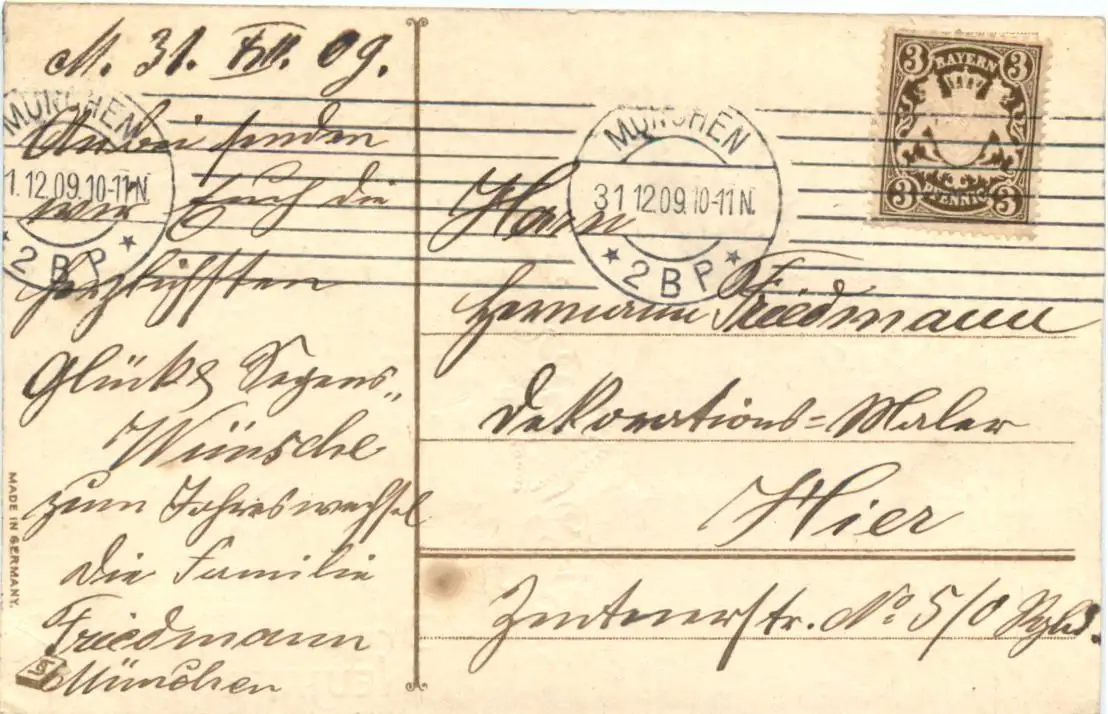 M. 31. XII. 09.
Anbei senden
wir Euch die
herzlichsten
Glücks Segens„
Wünsche
zum Jahreswechsel
die Familie
Friedmann
München
MÜNCHEN
1.12.09.10-11N.
2 B P
MÜNCHEN
31 12 09. 10-11 N.
2 B P
3 BAYERN 3
3 PFENNIG 3
Herrn
Hermann Friedmann
Dekorations=Maler
Hier
Zentnerstr. No 5/0
MADE IN GERMANY.